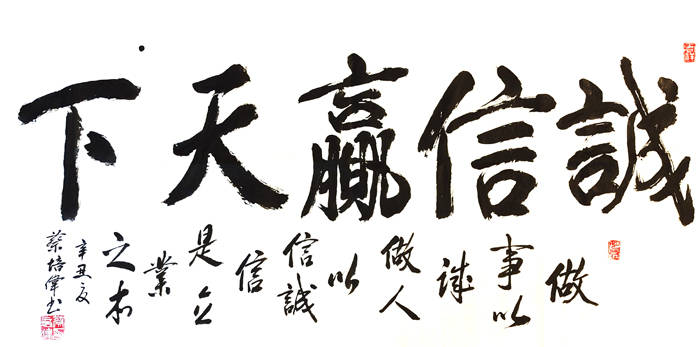 誠信贏天下
做
事以
誠
做人
以
信誠
信
是立
業
之本
辛丑夏
蔡培偉书